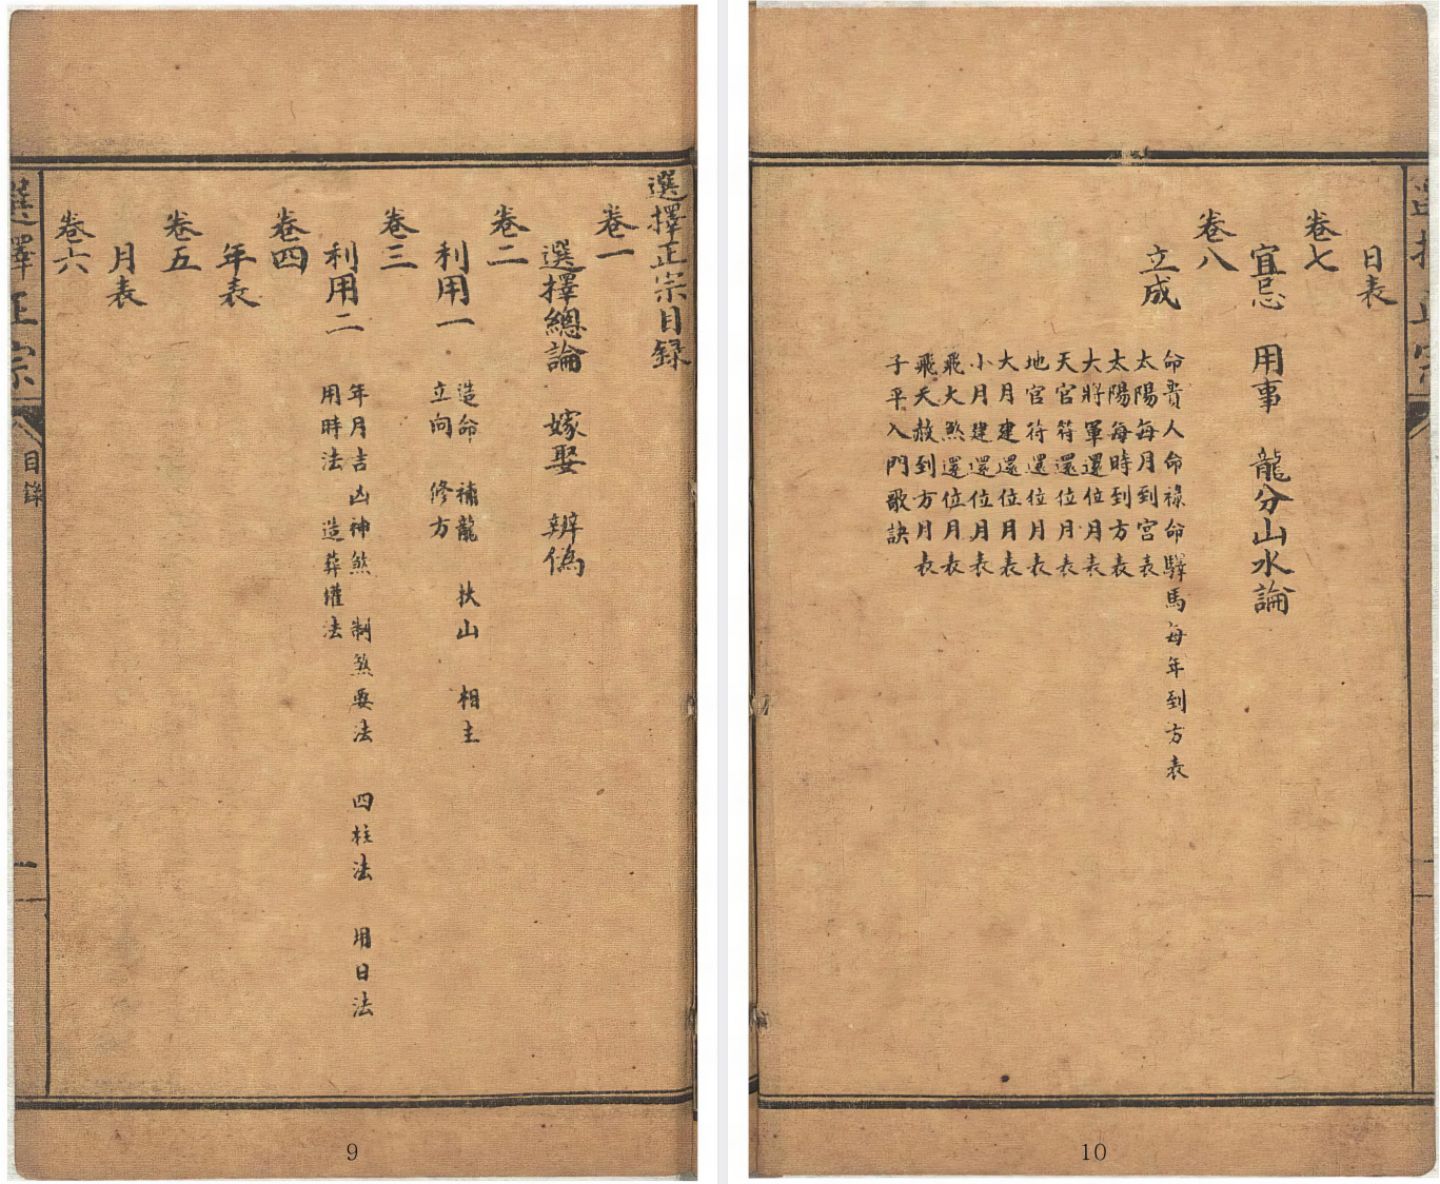 選擇正宗目録
卷一
選擇總論 嫁娶 辨偽
卷二
利用一 造命 補龍 扶山 相主
立向 修方
卷三
利用二 年月吉凶神煞 制煞要法 四柱法 用日法
用時法 造葬權法
卷四
年表
卷五
月表
卷六
選擇正宗
目錄
一
9
選擇正宗
日表
卷七
宜忌 用事 龍分山水論
卷八
立成
命貴人命祿命驛馬每年到方表
太陽每月到宮表
太陽每時到方表
大將軍還位月表
天官符還位月表
地官符還位月表
大月建還位月表
小月建還位月表
飛大煞還位月表
飛天赦到方月表
子平入門歌訣
10